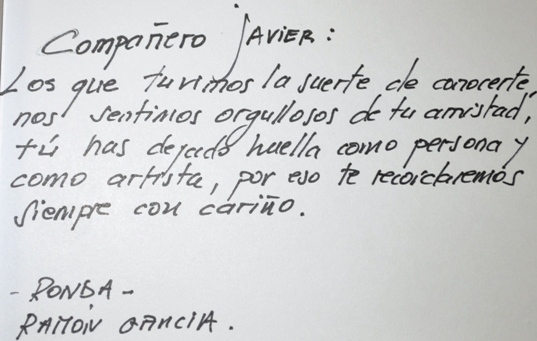 Compañero JAViER:
Los que tuvimos la suerte de conocerte,
nos sentimos orgullosos de tu amistad,
tú has dejado huella como persona y
como artista, por eso te recordaremos
siempre con cariño.
- RONDA -
RAMÓN GARCIA.